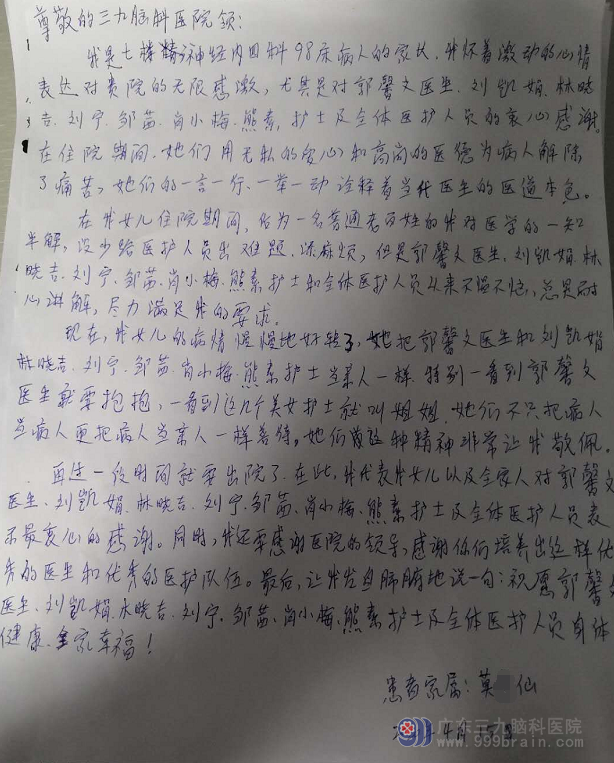 尊敬的三九脑科医院领:
我是七楼神经内四科98床病人的家长,我怀着激动的心情
表达对贵院的无限感激,尤其是对郭馨文医生、刘凯娟、林晓
吉、刘宁、邹苗、肖小梅、熊素,护士及全体医护人员的衷心感谢。
在住院期间,她们用无私的爱心和高尚的医德为病人解除
了痛苦,她们的一言一行、一举一动诠释着当代医生的医道本色。
在我女儿住院期间,作为一名普通老百姓的我对医学的一知
半解,没少给医护人员出难题、添麻烦,但是郭馨文医生、刘凯娟、林
晓吉、刘宁、邹苗、肖小梅、熊素护士和全体医护人员从来不愠不怒,总是耐
心讲解,尽力满足我的要求。
现在,我女儿的病情慢慢地好转了,她把郭馨文医生和刘凯娟
林晓吉、刘宁、邹苗、肖小梅、熊素护士当亲人一样,特别一看到郭馨文
医生就要抱抱,一看到这几个美女护士就叫姐姐,她们不只把病人
当病人更把病人当亲人一样善待。她们的这种精神非常让我敬佩。
再过一段时间就要出院了,在此,我代表我女儿以及全家人对郭馨文
医生、刘凯娟、林晓吉、刘宁、邹苗、肖小梅、熊素护士及全体医护人员表
示最衷心的感谢。同时,我还要感谢医院的领导,感谢你们培养出这样优
秀的医生和优秀的医护队伍。最后,让我发自肺腑地说一句:祝愿郭馨文
医生、刘凯娟、林晓吉、刘宁、邹苗、肖小梅、熊素护士及全体医护人员身体
健康、全家幸福!
患者家属:莫 仙
4月15日
广东三九脑科医院
www.999brain.com